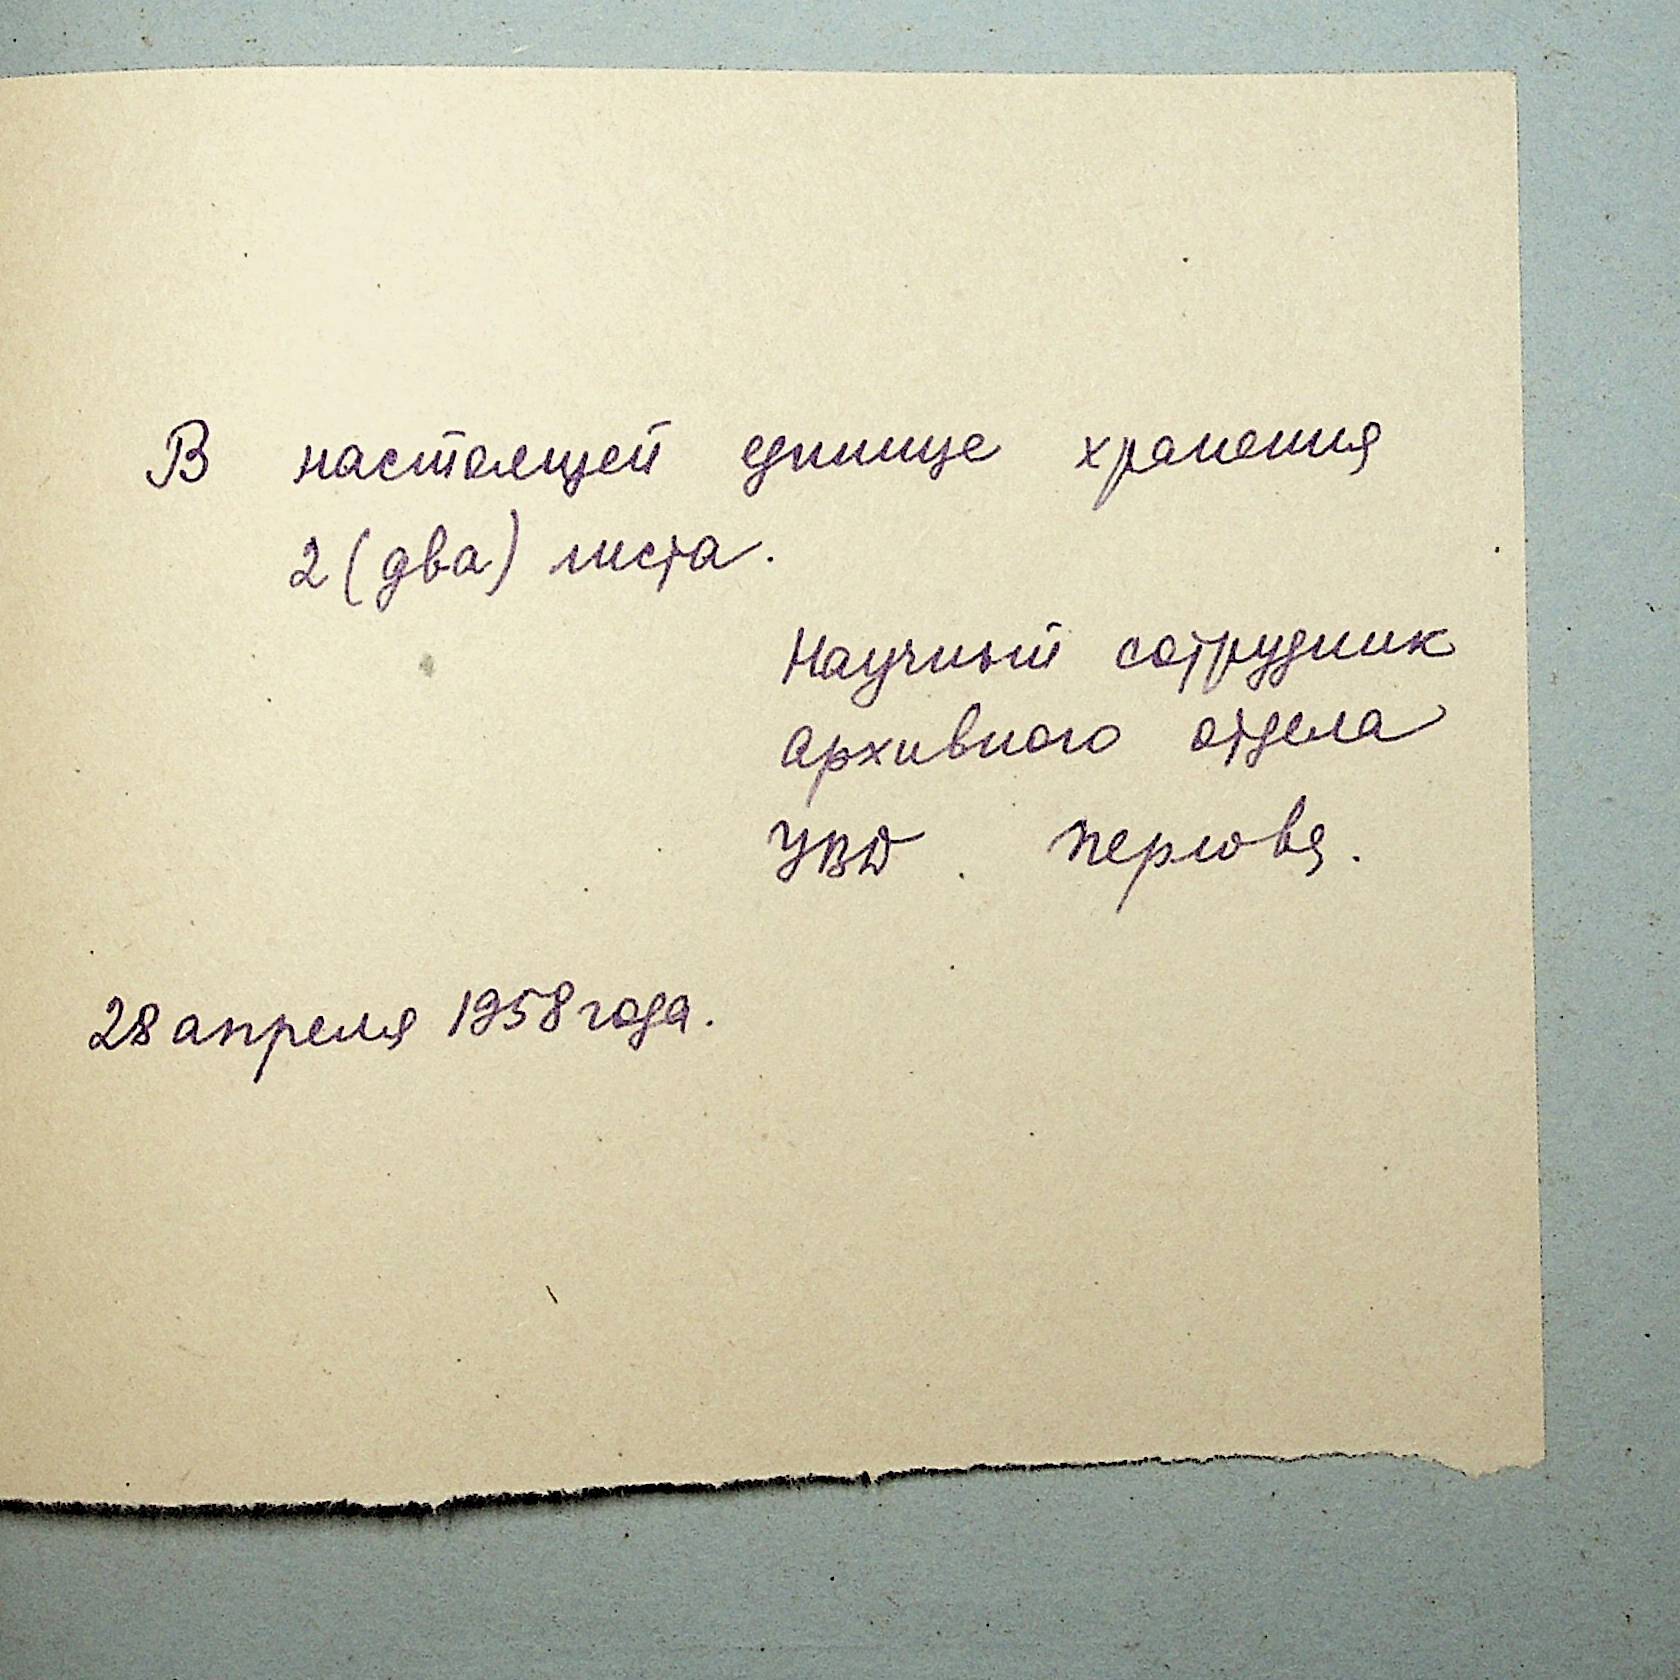 В настоящей единице хранения
2 (два) листа.
Научный сотрудник
архивного отдела
УВД. Перлова.
28 апреля 1958 года.